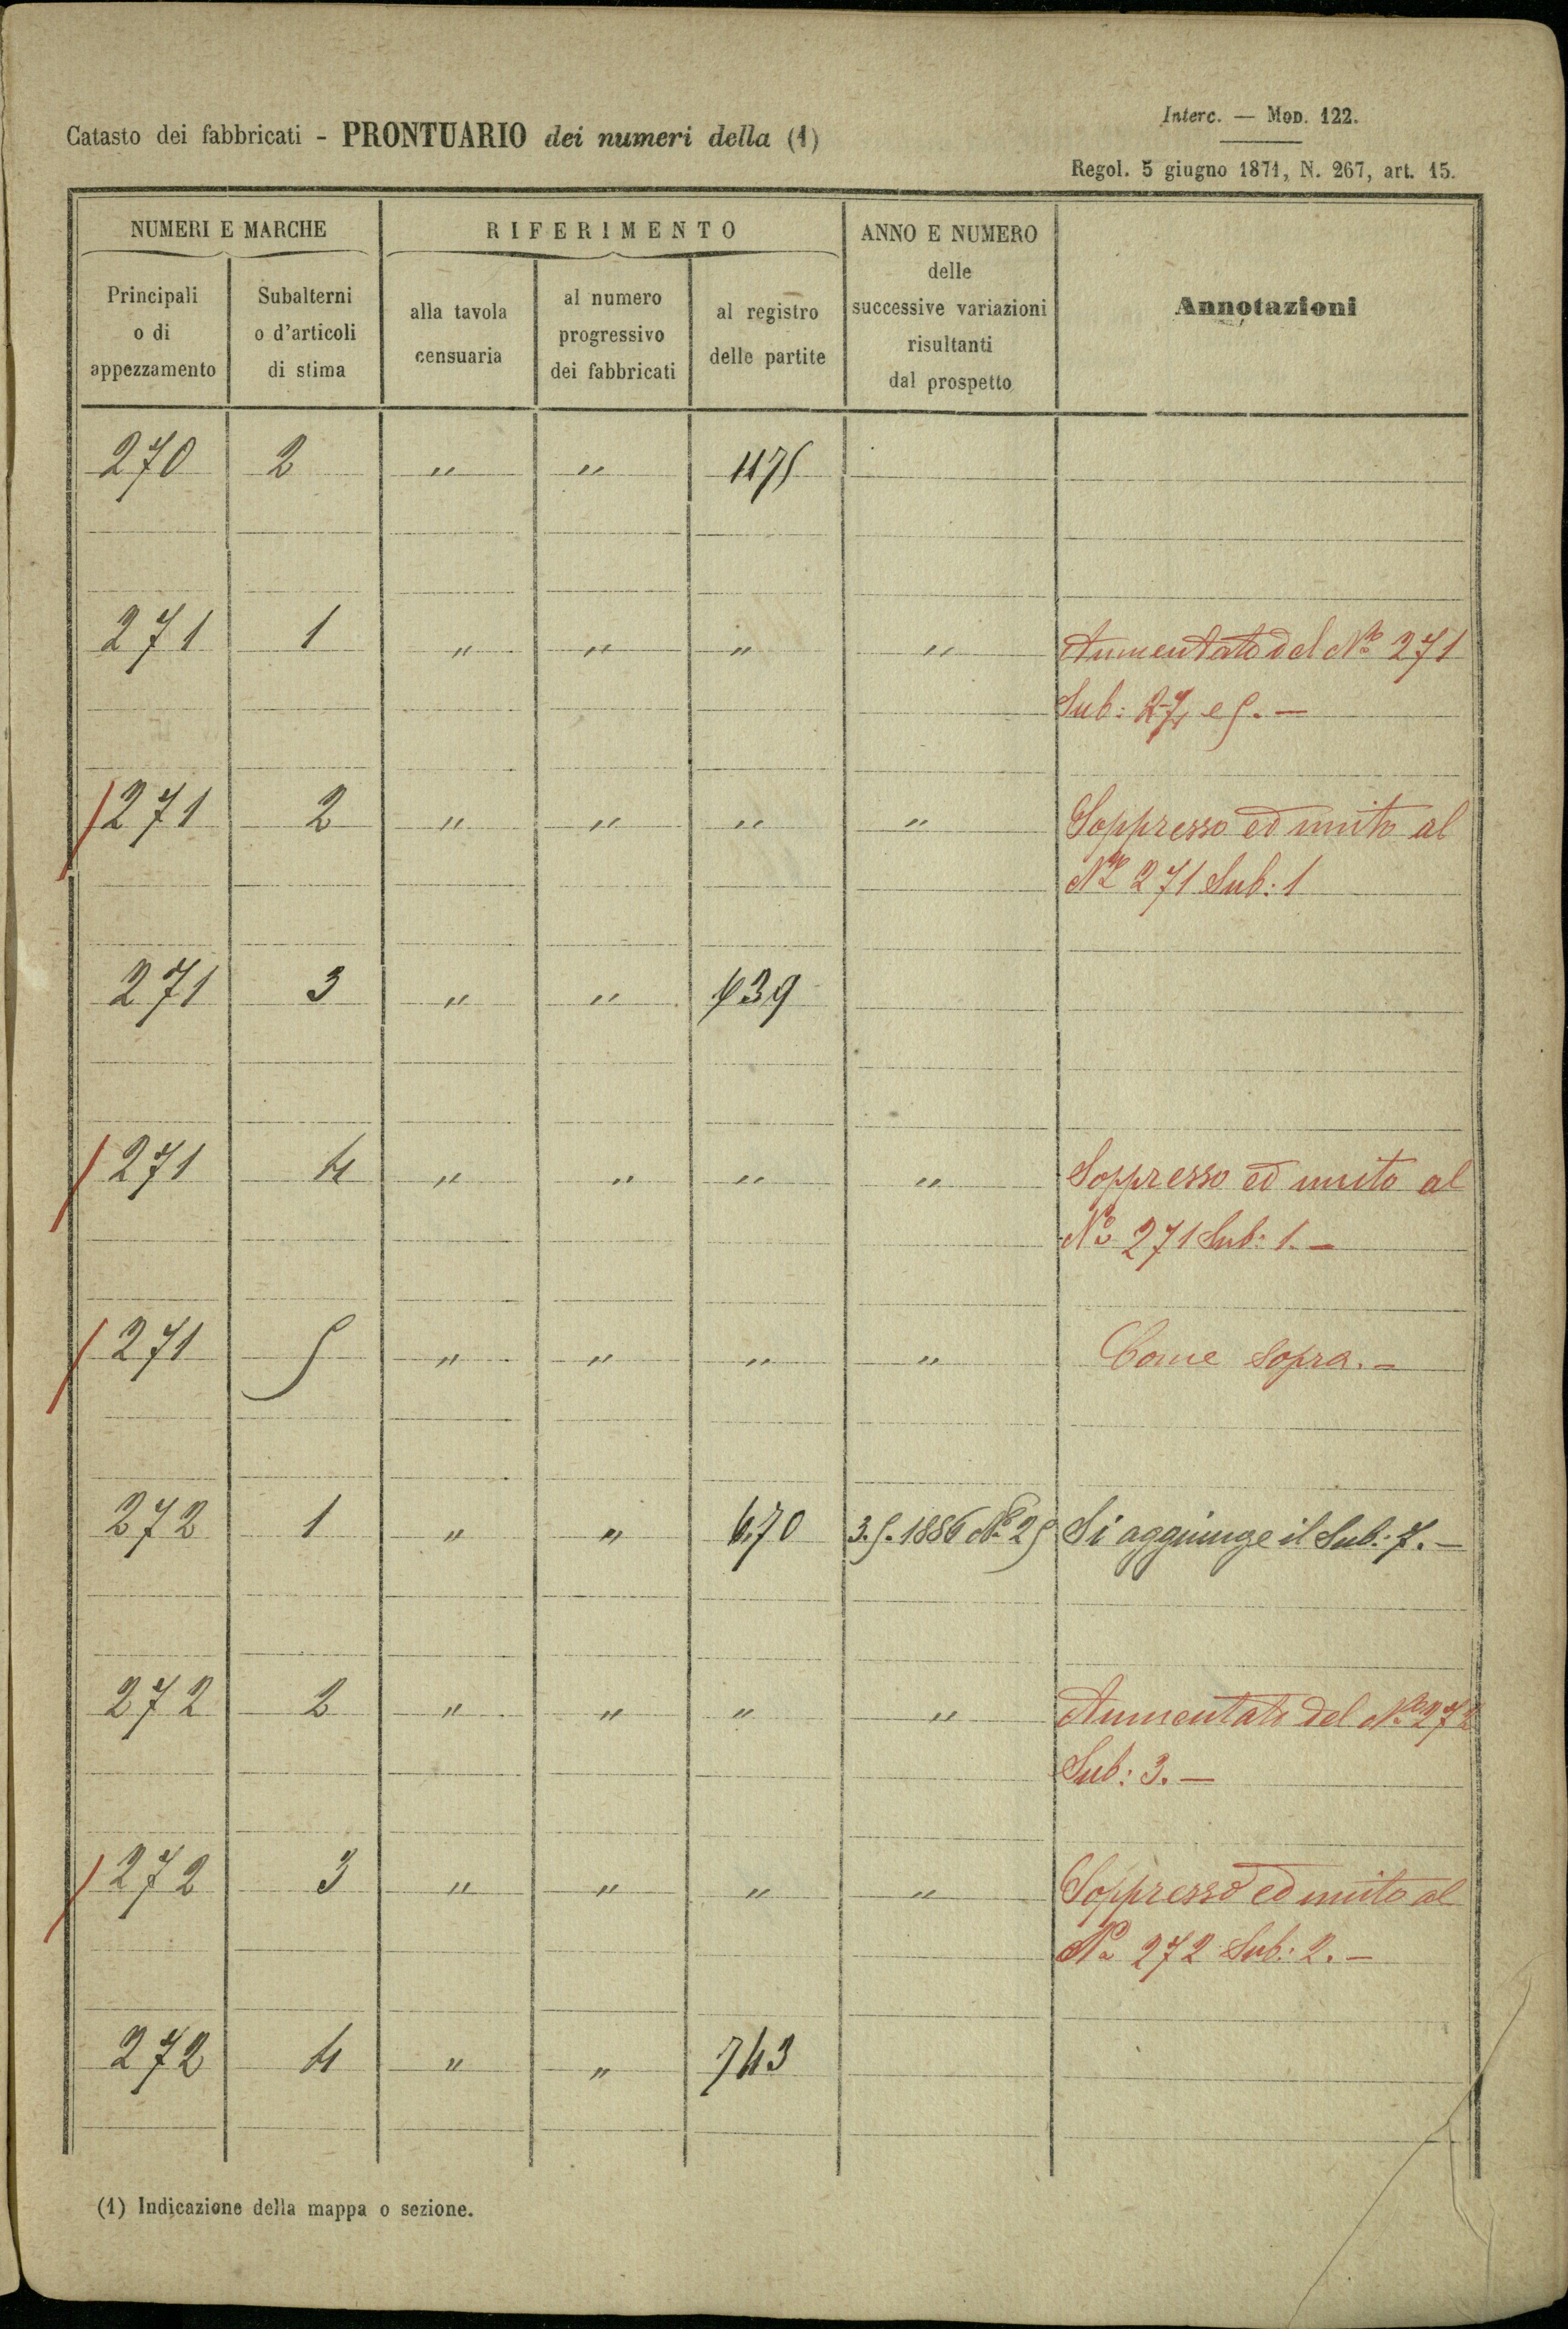 Interc. — Mod. 122.
Catasto dei fabbricati - PRONTUARIO dei numeri della (1)
Regol. 5 giugno 1871, N. 267, art. 15.
NUMERI E MARCHE
RIFERIMENTO
ANNO E NUMERO
delle
successive variazioni
risultanti
dal prospetto
Annotazioni
Principali
o di
appezzamento
Subalterni
o d'articoli
di stima
alla tavola
censuaria
al numero
progressivo
dei fabbricati
al registro
delle partite
270 2 " " 1175
271 1 " " " " Aumentato del No 271
Sub: 2 4 e 5. —
271 2 " " " " Soppresso ed unito al
No 271 Sub: 1
271 3 " " 439
271 4 " " " " Soppresso ed unito al
No 271 Sub: 1. —
271 5 " " " " Come sopra. —
272 1 " " 670 3.5.1886 No 25 Si aggiunge il Sub: 7. —
272 2 " " " " Aumentato del No 272
Sub: 3. —
272 3 " " " " Soppresso ed unito al
No 272 Sub: 2. —
272 4 " " 743
(1) Indicazione della mappa o sezione.